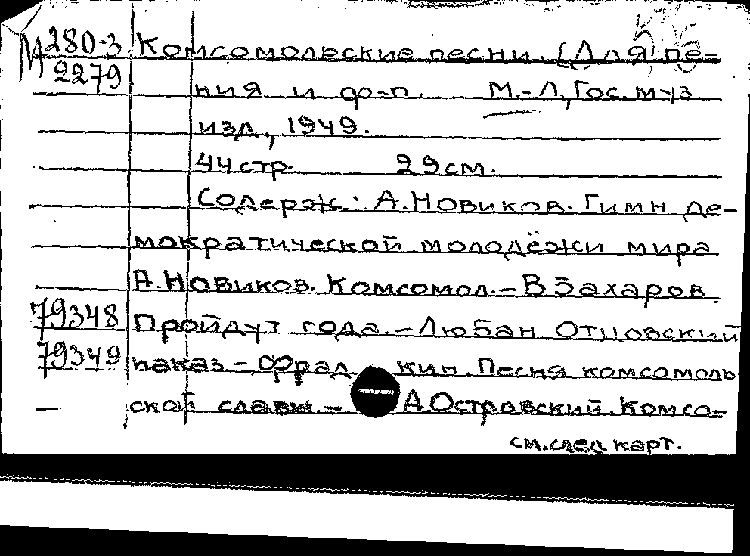 М 280-3 Комсомольские песни. [Для пе-
2279 ния и ф-п. М.-Л, Гос. муз
изд., 1949.
44 стр. 29 см.
Содерж: А. Новиков. Гимн де-
мократической молодёжи мира
А. Новиков. Комсомол.- В Захаров.
79348 Пройдут года.- Любан Отцовский
79349 наказ - Фрад кин. Песня комсомоль
- ской славы. - А Островский. Комсо-
см. след карт.